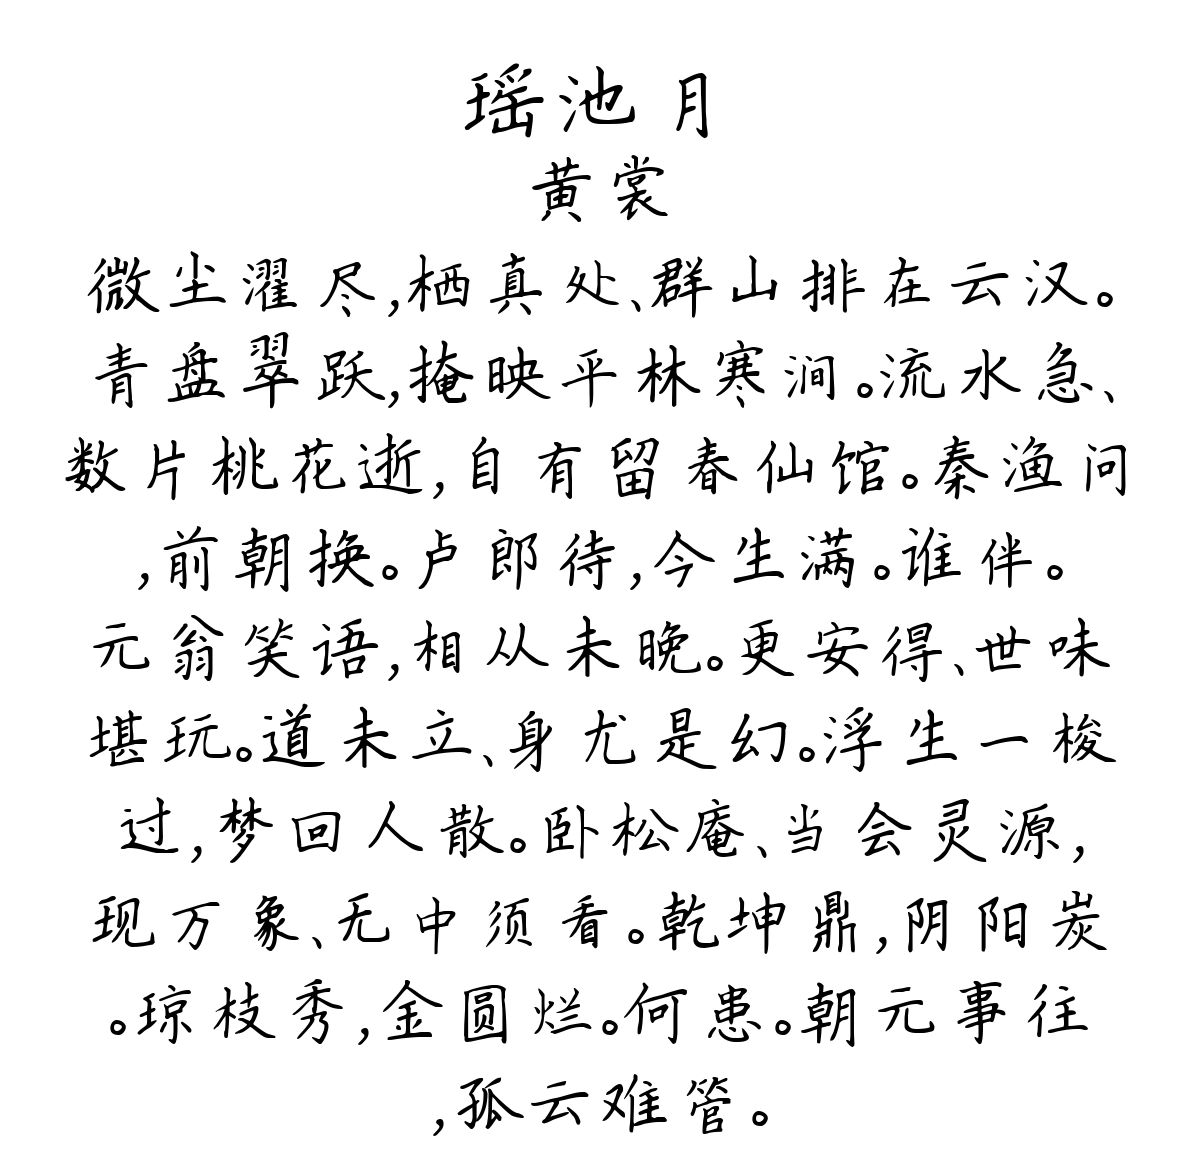 瑶池月
黄裳
微尘濯尽,栖真处、群山排在云汉。
青盘翠跃,掩映平林寒涧。流水急、
数片桃花逝,自有留春仙馆。秦渔问
,前朝换。卢郎待,今生满。谁伴。
元翁笑语,相从未晚。更安得、世味
堪玩。道未立、身尤是幻。浮生一梭
过,梦回人散。卧松庵、当会灵源,
现万象、无中须看。乾坤鼎,阴阳炭
。琼枝秀,金圆烂。何患。朝元事往
,孤云难管。